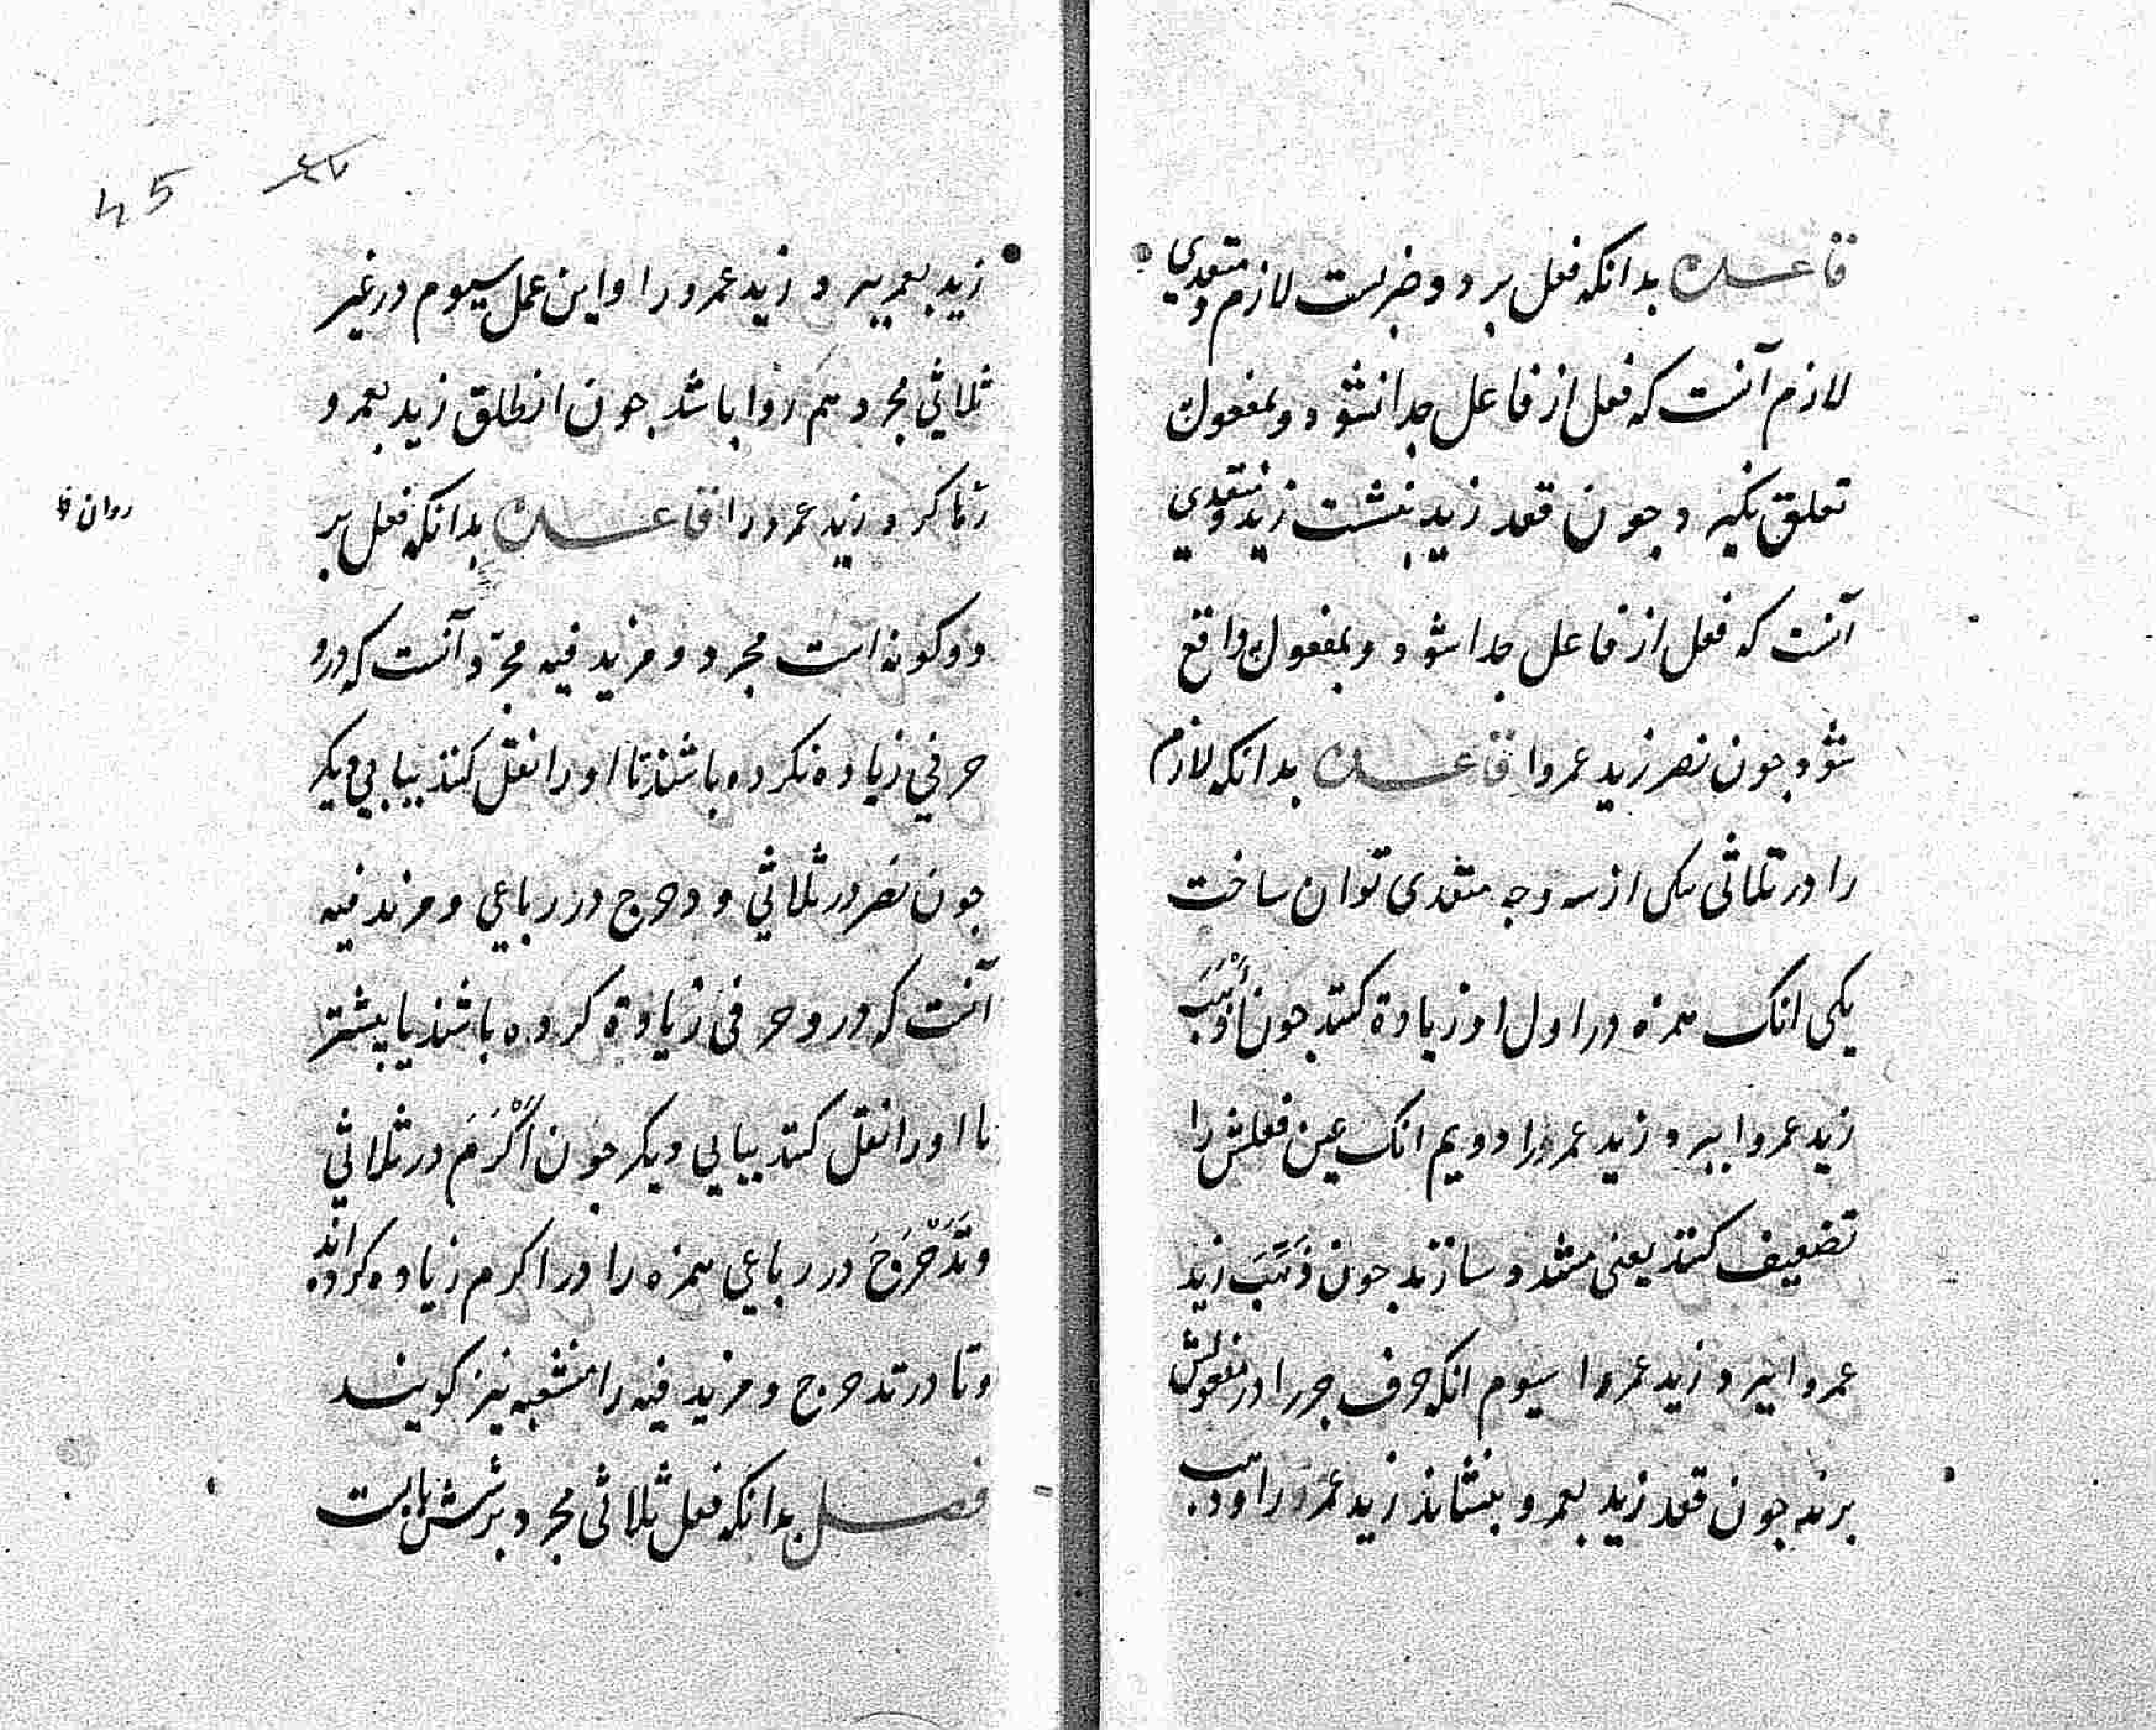 قاعده بدانکه فعل بر دو ضربست لازم و متعدی
لازم آنست که فعل از فاعل جدا نشود و بمفعول
تعلق نکیرد جون قعد زید بنشست زید و متعدی
آنست که فعل از فاعل جدا شود و بمفعول واقع
شود جون نصر زید عمروا قاعده بدانکه لازم
را در ثلاثی بیکی از سه وجه متعدی توان ساخت
یکی انک همزه در اول او زیادة کنند جون أَذْهَبَ
زید عمروا ببرد زید عمرو را دویم انک عین فعلش را
تضعیف کنند یعنی مشدد سازند جون ذَهَّبَ زید
عمروا ببرد زید عمروا سیوم انکه حرف جر را در مفعولش
برند جون قعد زید بعمرو بنشاند زید عمرو را و ذهب
زید بعمرو ببرد زید عمرو را و این عمل سیوم در غیر
ثلاثی مجرد هم روا باشد جون انطلق زید بعمرو
رها کرد زید عمرو را قاعده بدانکه فعل بر
روان ظ
دو کونه است مجرد و مزید فیه مجرد آنست که درو
حرفی زیاده نکرده باشند تا او را نقل کنند ببابی دیکر
جون نصر در ثلاثی و دحرج در رباعی و مزید فیه
آنست که درو حرفی زیادة کرده باشند یا بیشتر
تا او را نقل کنند ببابی دیکر جون اَکْرَمَ در ثلاثی
وتَدَحْرَجَ در رباعی همزه را در اکرم زیاده کرده اند
وتا در تدحرج و مزید فیه را منشعبه نیز کویند
فصل بدانکه فعل ثلاثی مجرد بر شش بابست
45